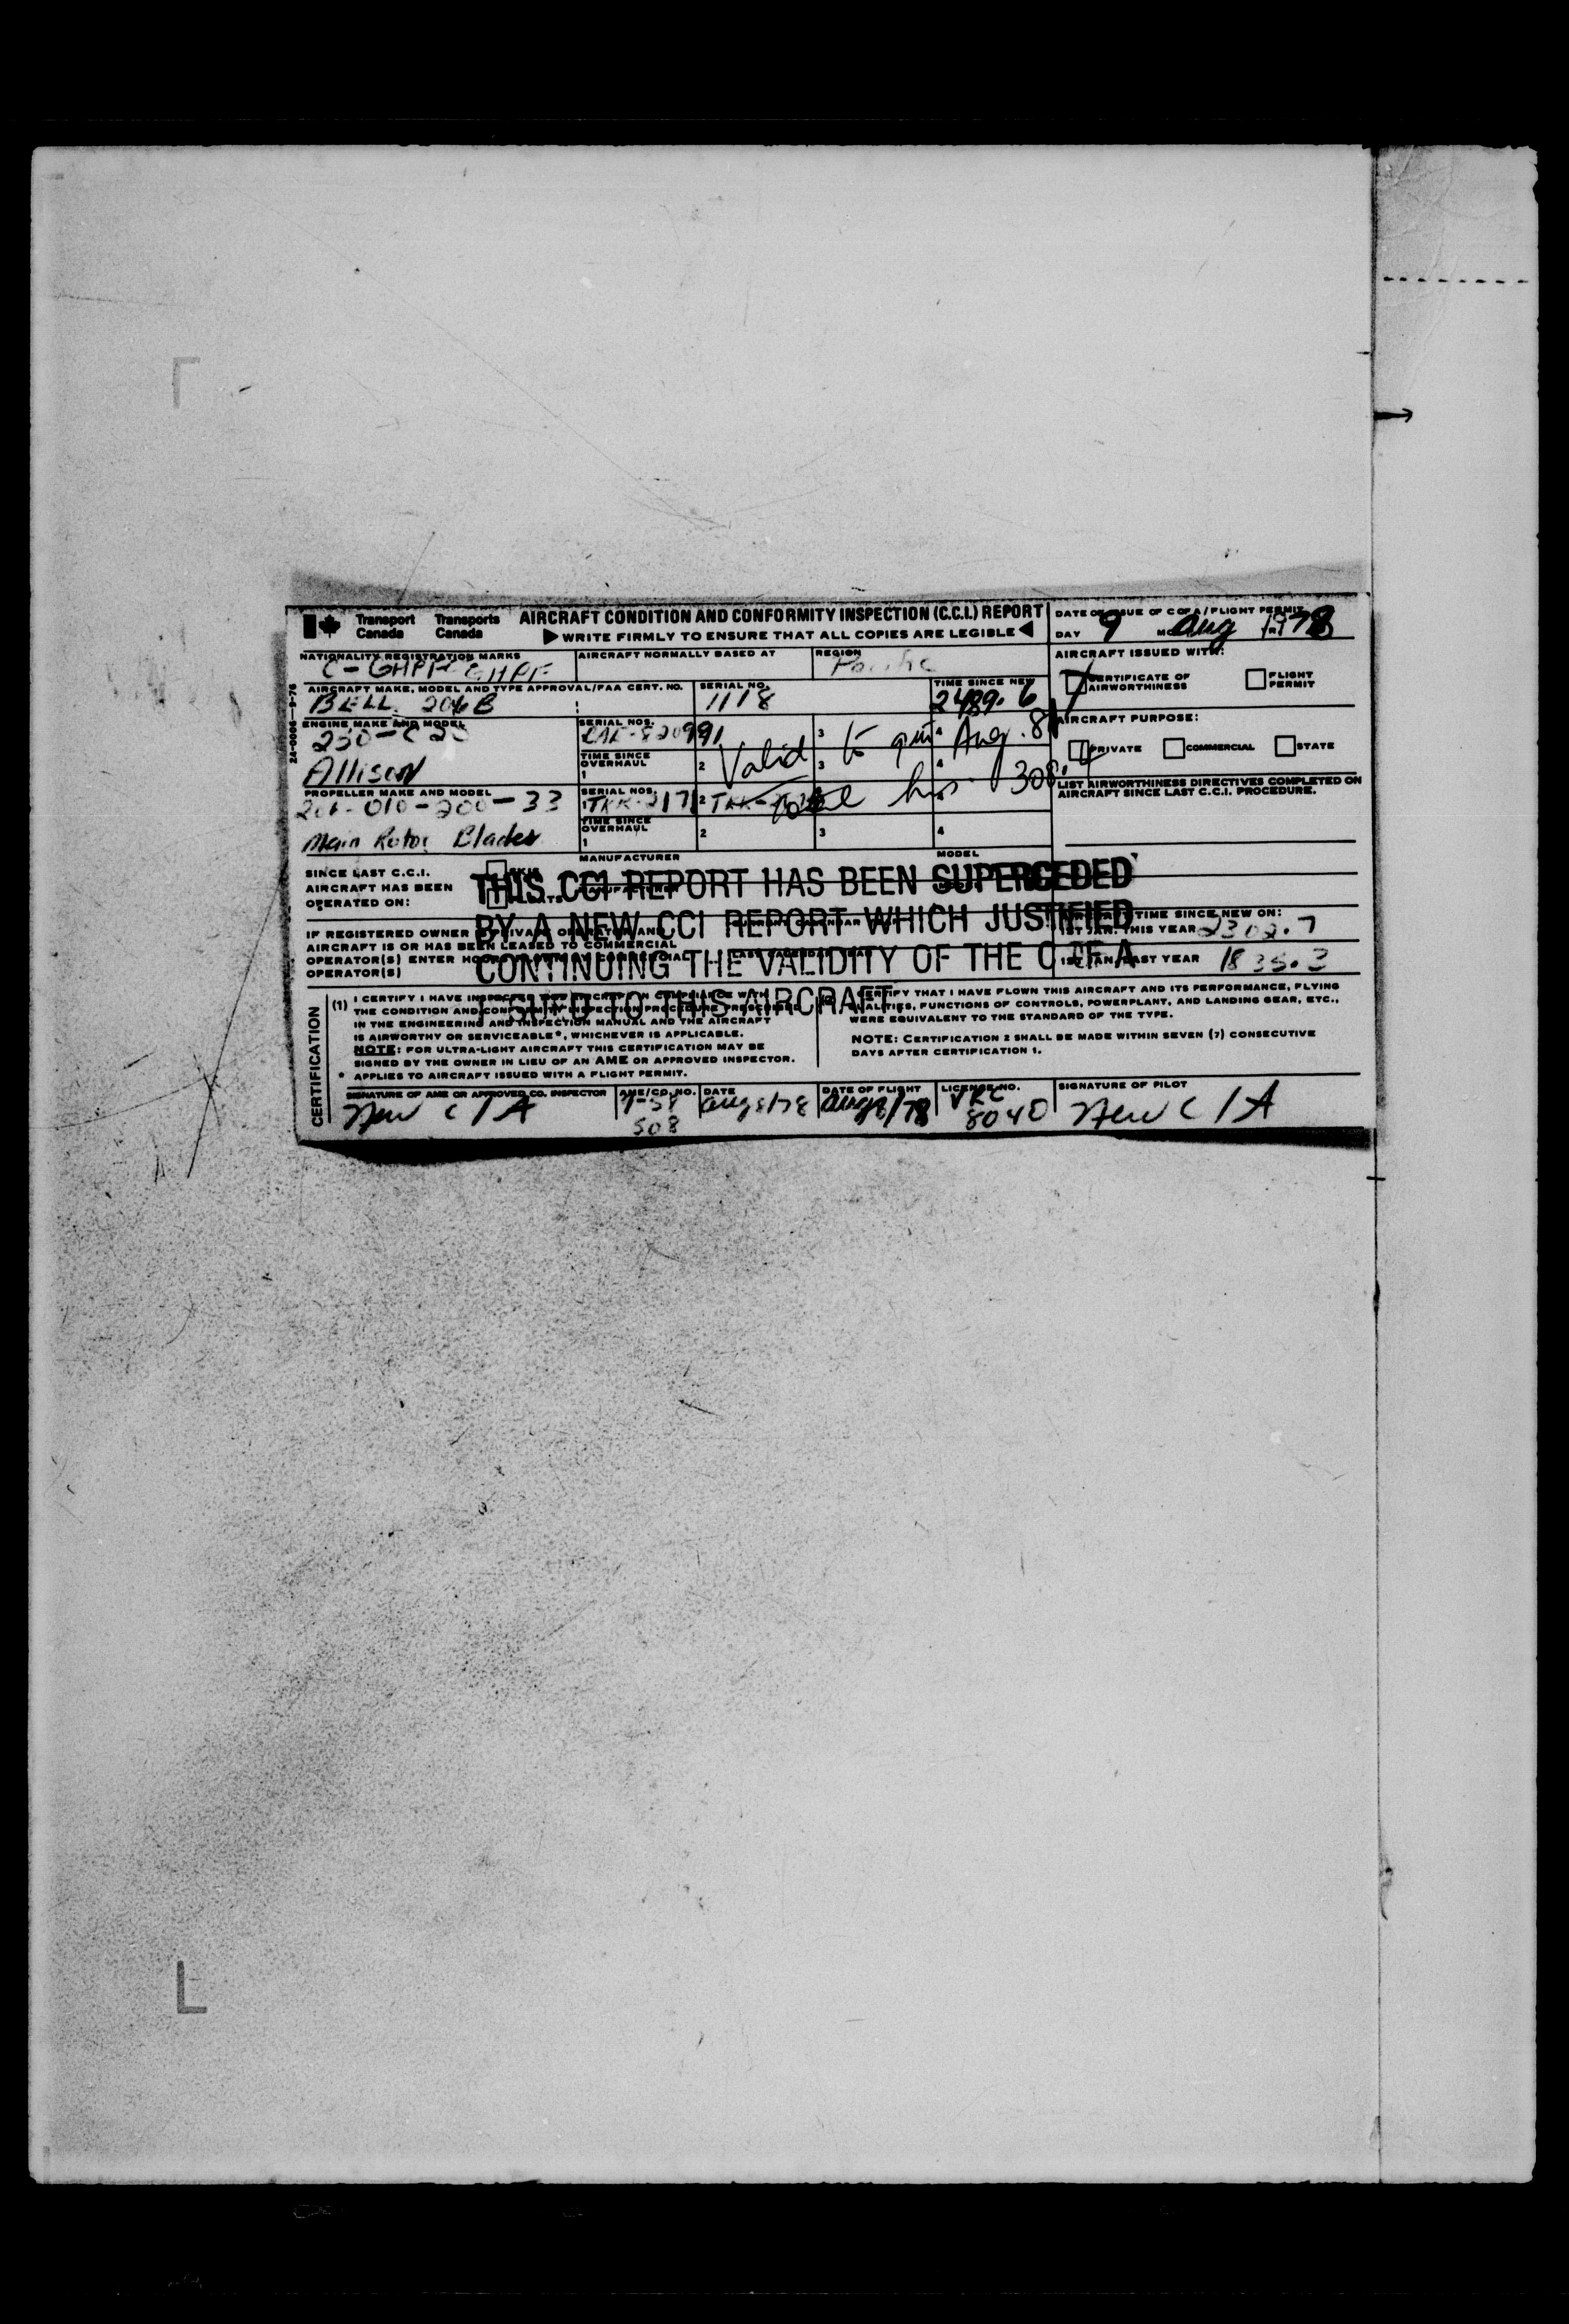 Transport Canada Transports Canada
AIRCRAFT CONDITION AND CONFORMITY INSPECTION (C.C.I.) REPORT
▶WRITE FIRMLY TO ENSURE THAT ALL COPIES ARE LEGIBLE◀
DATE OF ISSUE OF C OF A / FLIGHT PERMIT
DAY 9 Aug 1978
NATIONALITY REGISTRATION MARKS
C-GHPF GHPF
AIRCRAFT NORMALLY BASED AT
REGION
Pacific
AIRCRAFT ISSUED WITH:
CERTIFICATE OF AIRWORTHINESS
FLIGHT PERMIT
24-0006-9-76
AIRCRAFT MAKE, MODEL AND TYPE APPROVAL/FAA CERT. NO.
BELL 206B
SERIAL NO.
1118
TIME SINCE NEW
2489.6
AIRCRAFT PURPOSE:
PRIVATE COMMERCIAL STATE
ENGINE MAKE AND MODEL
250-C20
Allison
SERIAL NOS.
3 4
TIME SINCE OVERHAUL
1 2 3 4
Valid to Aug. 8
PROPELLER MAKE AND MODEL
206-010-200-33
Main Rotor Blades
SERIAL NOS.
1 TKK-2171 2
total hrs 308.4
TIME SINCE OVERHAUL
1 2 3 4
LIST AIRWORTHINESS DIRECTIVES COMPLETED ON
AIRCRAFT SINCE LAST C.C.I. PROCEDURE.
MANUFACTURER MODEL
SINCE LAST C.C.I.
AIRCRAFT HAS BEEN
OPERATED ON:
THIS CCI REPORT HAS BEEN SUPERCEDED
BY A NEW CCI REPORT WHICH JUSTIFIED
CONTINUING THE VALIDITY OF THE C OF A
ISSUED TO THIS AIRCRAFT.
IF REGISTERED OWNER
AIRCRAFT IS OR HAS BEEN LEASED TO COMMERCIAL
OPERATOR(S) ENTER
OPERATOR(S)
TIME SINCE NEW ON:
1ST JAN. THIS YEAR 2302.7
1ST JAN. LAST YEAR 1835.3
CERTIFICATION
(1) I CERTIFY I HAVE INSPECTED THIS AIRCRAFT IN COMPLIANCE WITH
THE CONDITION AND CONFORMITY INSPECTION PROCEDURE PRESCRIBED
IN THE ENGINEERING AND INSPECTION MANUAL AND THE AIRCRAFT
IS AIRWORTHY OR SERVICEABLE*, WHICHEVER IS APPLICABLE.
NOTE: FOR ULTRA-LIGHT AIRCRAFT THIS CERTIFICATION MAY BE
SIGNED BY THE OWNER IN LIEU OF AN AME OR APPROVED INSPECTOR.
* APPLIES TO AIRCRAFT ISSUED WITH A FLIGHT PERMIT.
CERTIFY THAT I HAVE FLOWN THIS AIRCRAFT AND ITS PERFORMANCE, FLYING
QUALITIES, FUNCTIONS OF CONTROLS, POWERPLANT, AND LANDING GEAR, ETC.,
WERE EQUIVALENT TO THE STANDARD OF THE TYPE.
NOTE: CERTIFICATION 2 SHALL BE MADE WITHIN SEVEN (7) CONSECUTIVE
DAYS AFTER CERTIFICATION 1.
SIGNATURE OF AME OR APPROVED CO. INSPECTOR
New C/A
AME/CO. NO.
508
DATE
Aug 8/78
DATE OF FLIGHT
Aug 8/78
LICENSE NO.
VRC
8040
SIGNATURE OF PILOT
New C/A